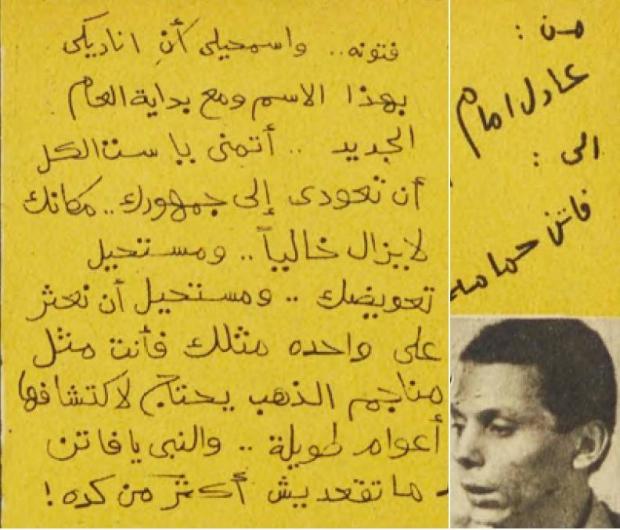 فتونه.. واسمحيلى أن اناديكى
بهذا الاسم ومع بداية العام
الجديد .. أتمنى يا ست الكل
أن تعودى إلى جمهورك.. مكانك
لا يزال خالياً.. ومستحيل
تعويضك .. ومستحيل أن نعثر
على واحده مثلك فأنت مثل
مناجم الذهب يحتاج لاكتشافها
أعوام طويلة .. والنبى يا فاتن
ما تقعديش أكثر من كده!
من :
عادل امام
الى :
فاتن حمامه